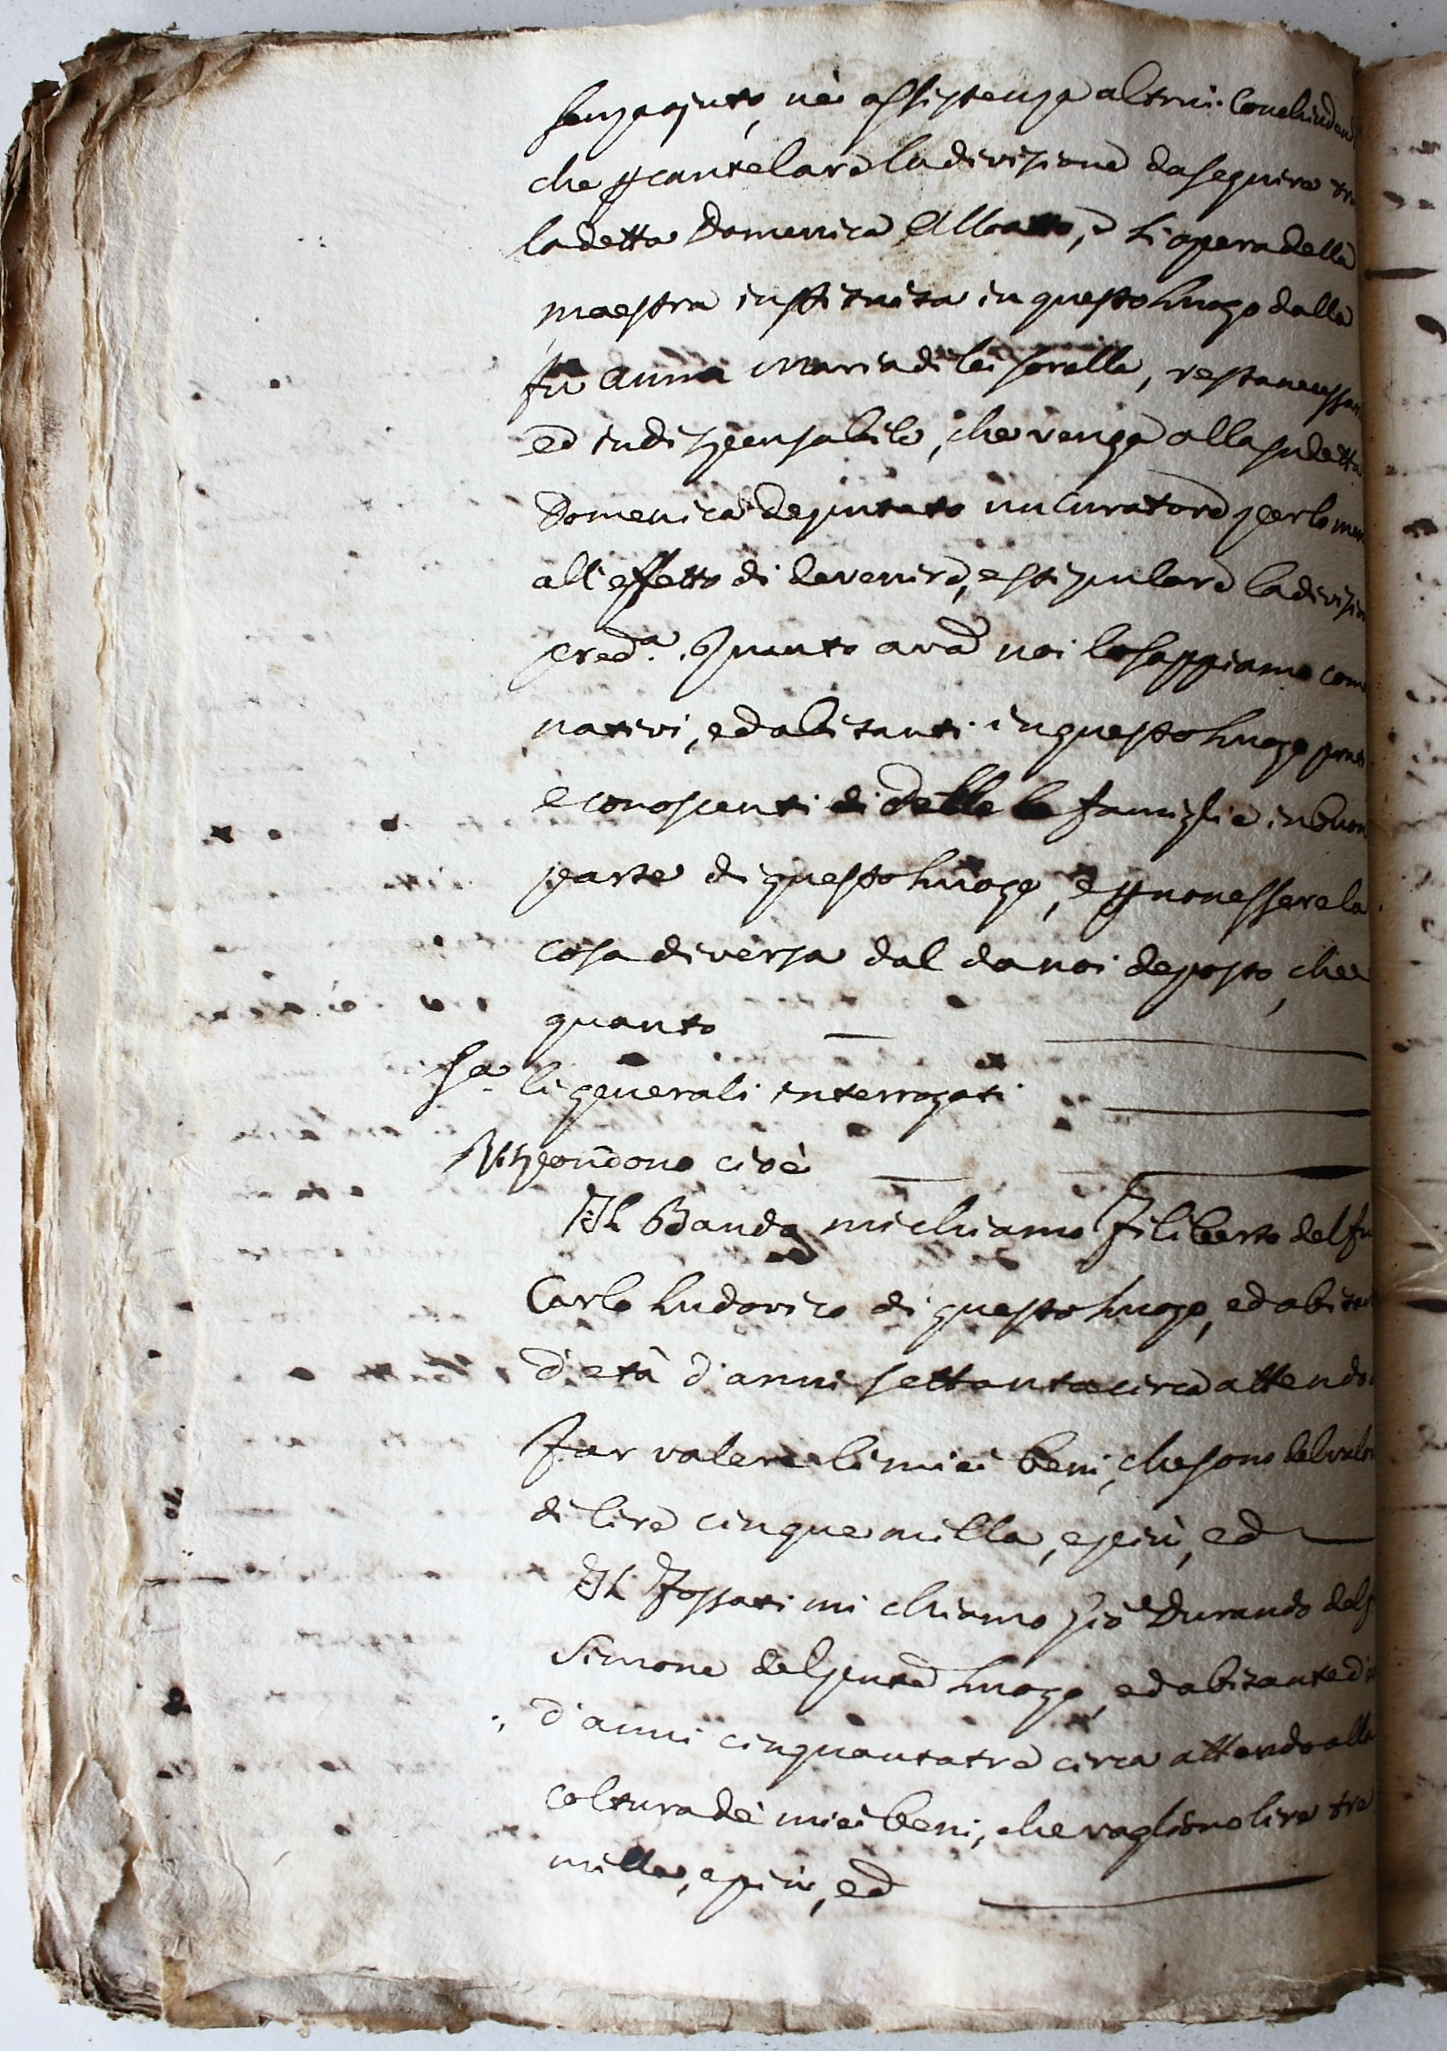 senza ajuto, nè assistenza altrui. Conchiudend
che p cautelare la divisione da seguire tra
la detta Domenica Alloatto, e l'opera della
maestra instituita in questo luogo dalla
fu Anna Maria di lei sorella, resta necessari
ed indispensabile, che venga alla sudetta
Domenica deputato un curatore per lo men
all'effetto di devenire, e stipulare la divisio
pred.a. Quanto avad noi lo sappiamo come
nativi, ed abitanti in questo luogo
e conoscenti di delle le famiglie in buon
parte di questo luogo, e p non essere la
cosa diversa dal da noi deposto, che
quanto
Sa. li generali interrogati
Rispondono cioè
Il Banda mi chiamo Filiberto del fu
Carlo Ludovico di questo luogo, ed abitan
d'età d'anni settanta circa attendo a
far valere li miei beni, che sono del valor
di lire cinque milla, e più, ed
Il Fossati mi chiamo Gio Durando del f
Simone del pnte luogo, ed abitante d'e
d'anni cinquantatre circa attendo alla
coltura de' miei beni, che vagliono lire tre
milla, e più, ed